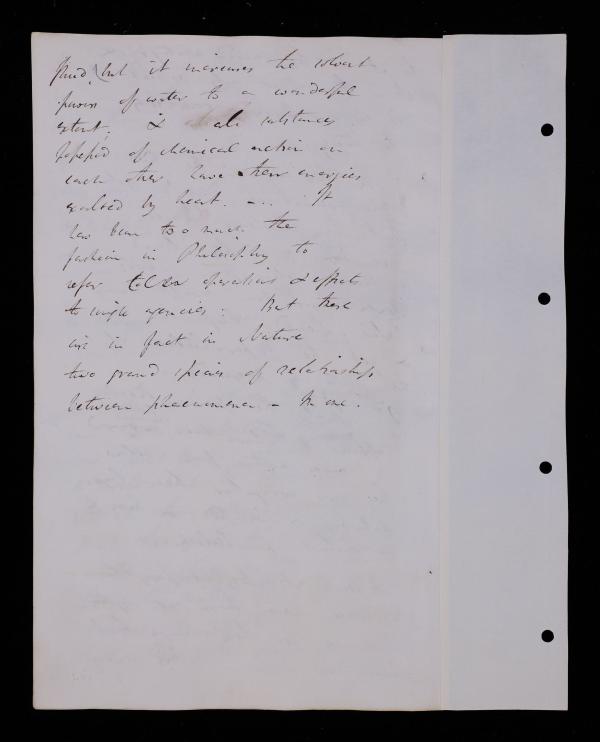 fluid, but it increases the solvent
powers of water to a wonderful
extent; & all substances
possessed of chemical action on
each other have their energies
exalted by heat. - .. It
has been too much the
fashion in Philosophy to
refer operations & effects
to single agencies. But there
are in fact in Nature
two grand species of relationship
between phaenomena - In one.